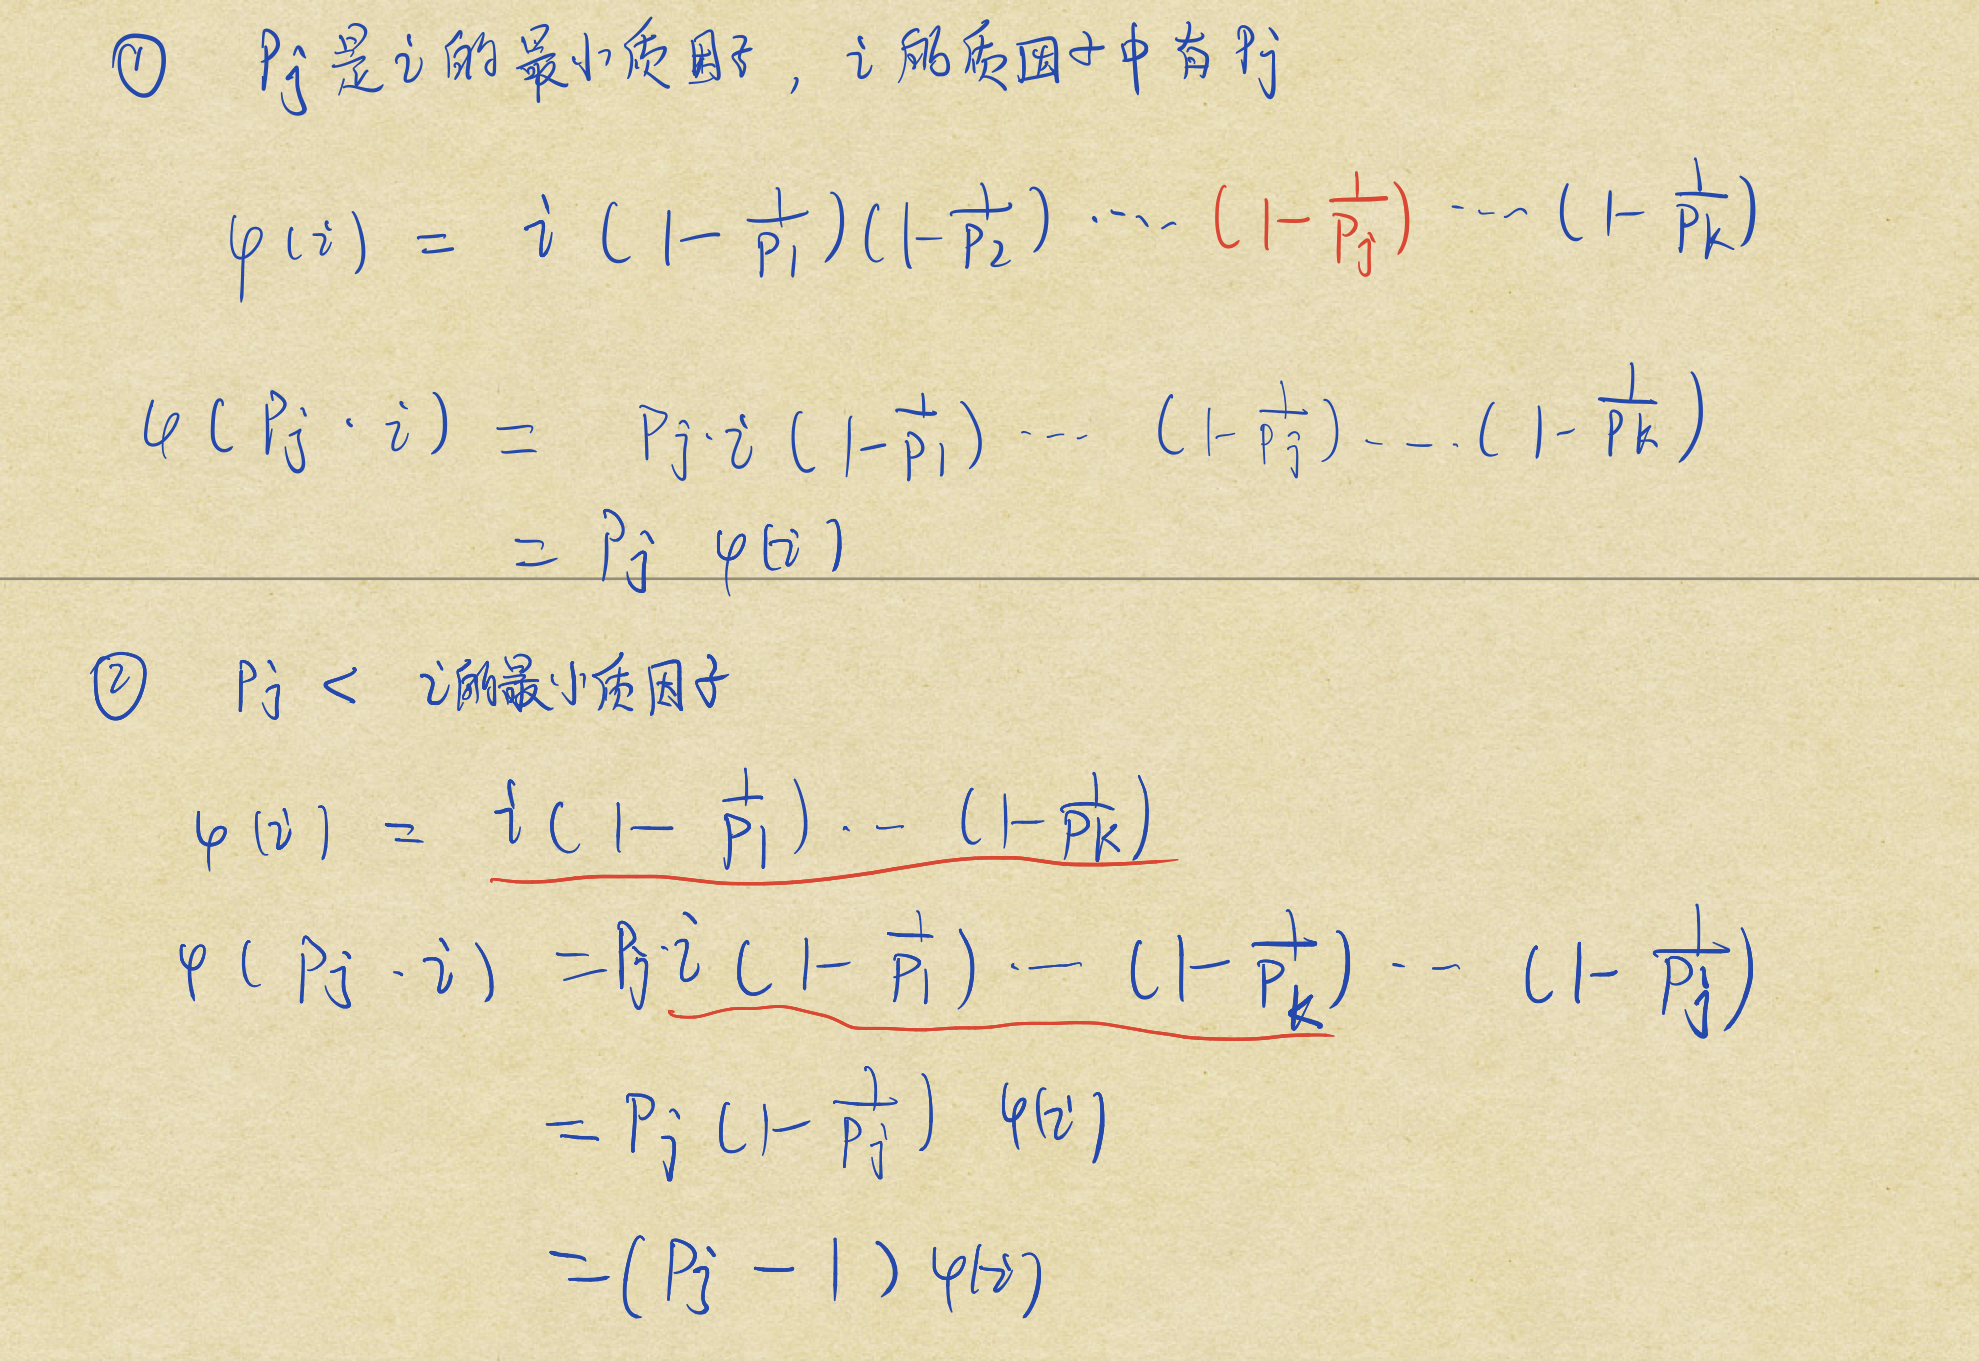 ① Pj是i的最小质因子，i的质因子中有Pj
φ(i) = i(1-1/P1)(1-1/P2)⋯(1-1/Pj)⋯(1-1/Pk)
φ(Pj·i) = Pj·i(1-1/P1)⋯(1-1/Pj)⋯(1-1/Pk)
= Pj φ(i)
② Pj < i的最小质因子
φ(i) = i(1-1/P1)⋯(1-1/Pk)
φ(Pj·i) = Pj·i(1-1/P1)⋯(1-1/Pk)⋯(1-1/Pj)
= Pj(1-1/Pj) φ(i)
= (Pj-1)φ(i)